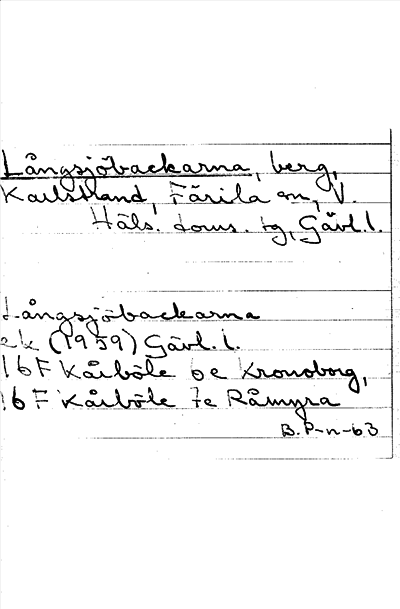 Långsjöbackarna, berg,
Karlstrand, Färila sn, V.
Häls. doms. tg, Gävl. l.
Långsjöbackarna
ek (1959) Gävl. l.
16 F Kårböle 6e Kronoborg,
16 F Kårböle 7e Råmyra
B. P-n-63